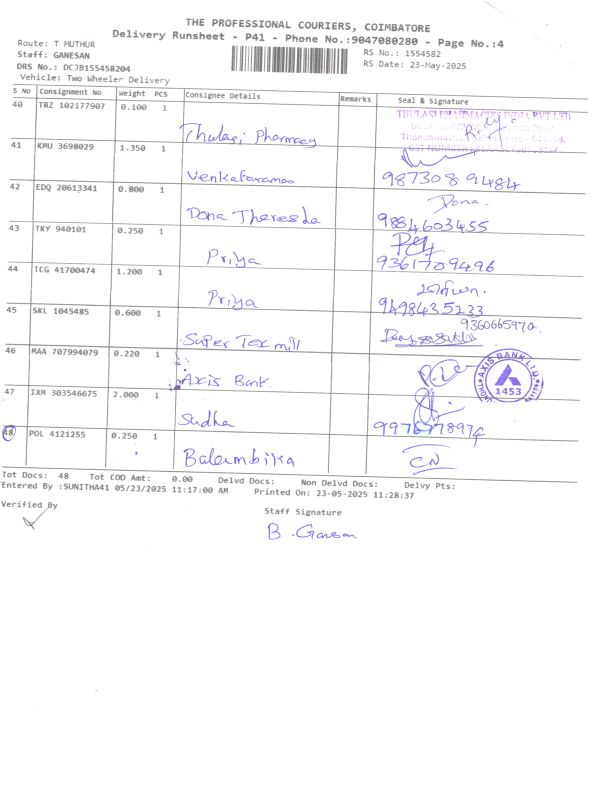 THE PROFESSIONAL COURIERS, COIMBATORE
Delivery Runsheet - P41 - Phone No.:9047080280 - Page No.:4
Route: T MUTHUR
RS No.: 1554582
Staff: GANESAN
RS Date: 23-May-2025
DRS No.: DC7B155458204
Vehicle: Two Wheeler Delivery
S No Consignment No Weight PCS Consignee Details Remarks Seal & Signature
40 TRZ 102177907 0.100 1
THULASI PHARMACIES INDIA PVT LTD
Thulasi Pharmacy
41 KMU 3698029 1.350 1
Venkataraman 9873089484
42 EDQ 20613341 0.800 1 Dona.
Dona Theresda 9884603455
43 TKY 940101 0.250 1
Priya 9361709496
44 TCG 41700474 1.200 1
Priya 9498435233
45 SKL 1045485 0.600 1 9360665970.
Super Tex mill
46 MAA 707994079 0.220 1
AXIS BANK LTD.
1453
Axis Bank.
47 IXM 303546675 2.000 1
Sudha
48 POL 4121255 0.250 1
Balambika CN
Tot Docs: 48 Tot COD Amt: 0.00 Delvd Docs: Non Delvd Docs: Delvy Pts:
Entered By :SUNITHA41 05/23/2025 11:17:00 AM Printed On: 23-05-2025 11:28:37
Verified By
Staff Signature
B. Ganesan